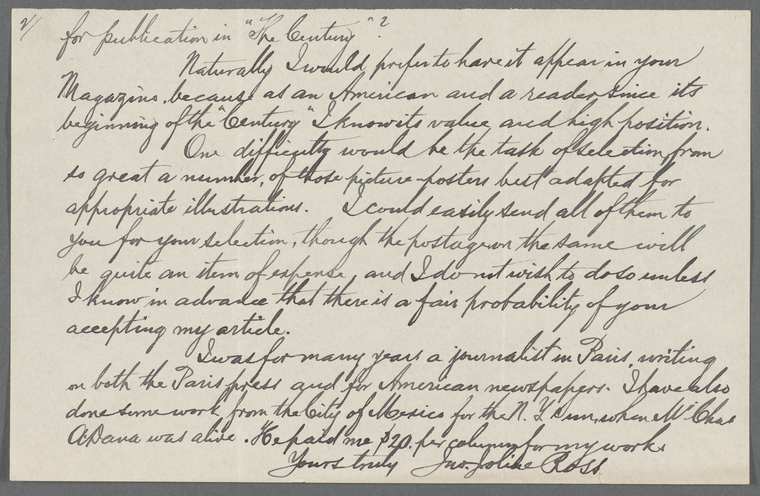 2/
for publication in "The Century"?
Naturally I would prefer to have it appear in your
Magazine, because as an American and a reader since its
beginning of the "Century" I know its value and high position.
One difficulty would be the task of selection, from
so great a number, of those picture-posters best adapted for
appropriate illustrations. I could easily send all of them to
you for your selection, though the postage on the same will
be quite an item of expense, and I do not wish to do so unless
I know in advance that there is a fair probability of your
accepting my article.
I was for many years a journalist in Paris, writing
on both the Paris press and for American newspapers. I have also
done some work from the City of Mexico for the N.Y. Sun, when Mr Chas
A Dana was alive. He paid me $20. per column for my work.
Yours truly Jno. Joline Ross